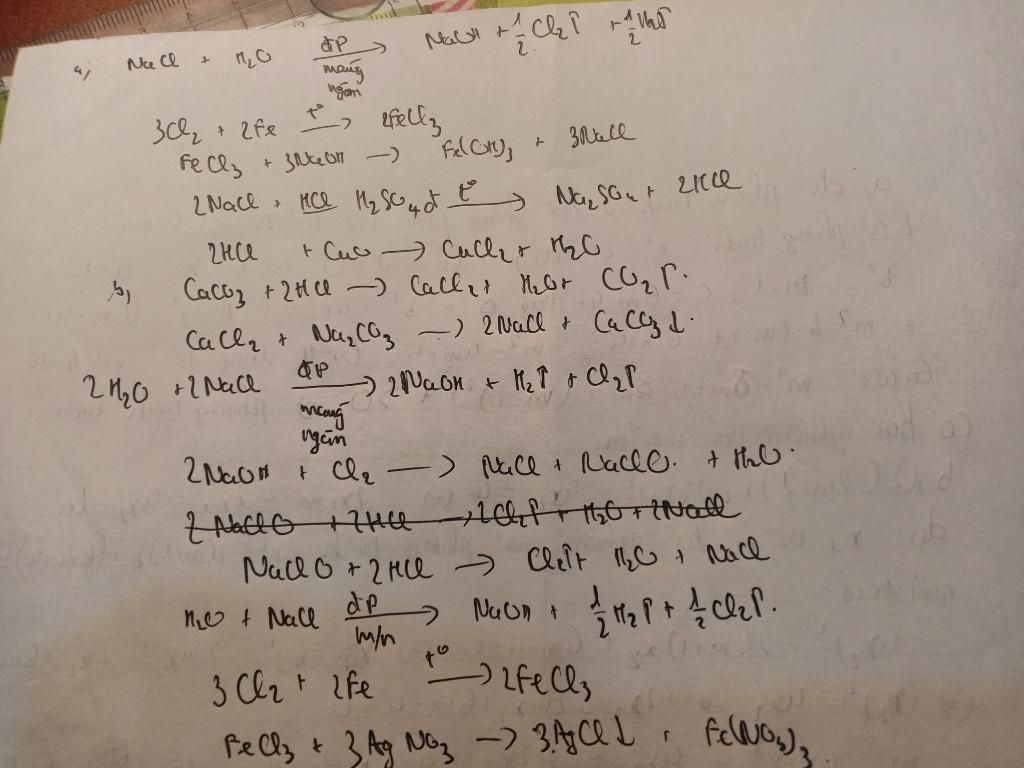 a, NaCl + H₂O –đp màng ngăn→ NaOH + ½Cl₂↑ + ½H₂↑
3Cl₂ + 2Fe –t°→ 2FeCl₃
FeCl₃ + 3NaOH → Fe(OH)₃ + 3NaCl
2NaCl + HCl H₂SO₄đ –t°→ Na₂SO₄ + 2HCl
2HCl + CuO → CuCl₂ + H₂O
b, CaCO₃ + 2HCl → CaCl₂ + H₂O + CO₂↑.
CaCl₂ + Na₂CO₃ → 2NaCl + CaCO₃↓.
2H₂O + 2NaCl –đp màng ngăn→ 2NaOH + H₂↑ + Cl₂↑
2NaOH + Cl₂ → NaCl + NaClO. + H₂O.
2NaClO + 2HCl → 2Cl₂↑ + H₂O + 2NaCl
NaClO + 2HCl → Cl₂↑ + H₂O + NaCl
H₂O + NaCl –đp m/n→ NaOH + ½H₂↑ + ½Cl₂↑.
3Cl₂ + 2Fe –t°→ 2FeCl₃
FeCl₃ + 3AgNO₃ → 3AgCl↓ + Fe(NO₃)₃.